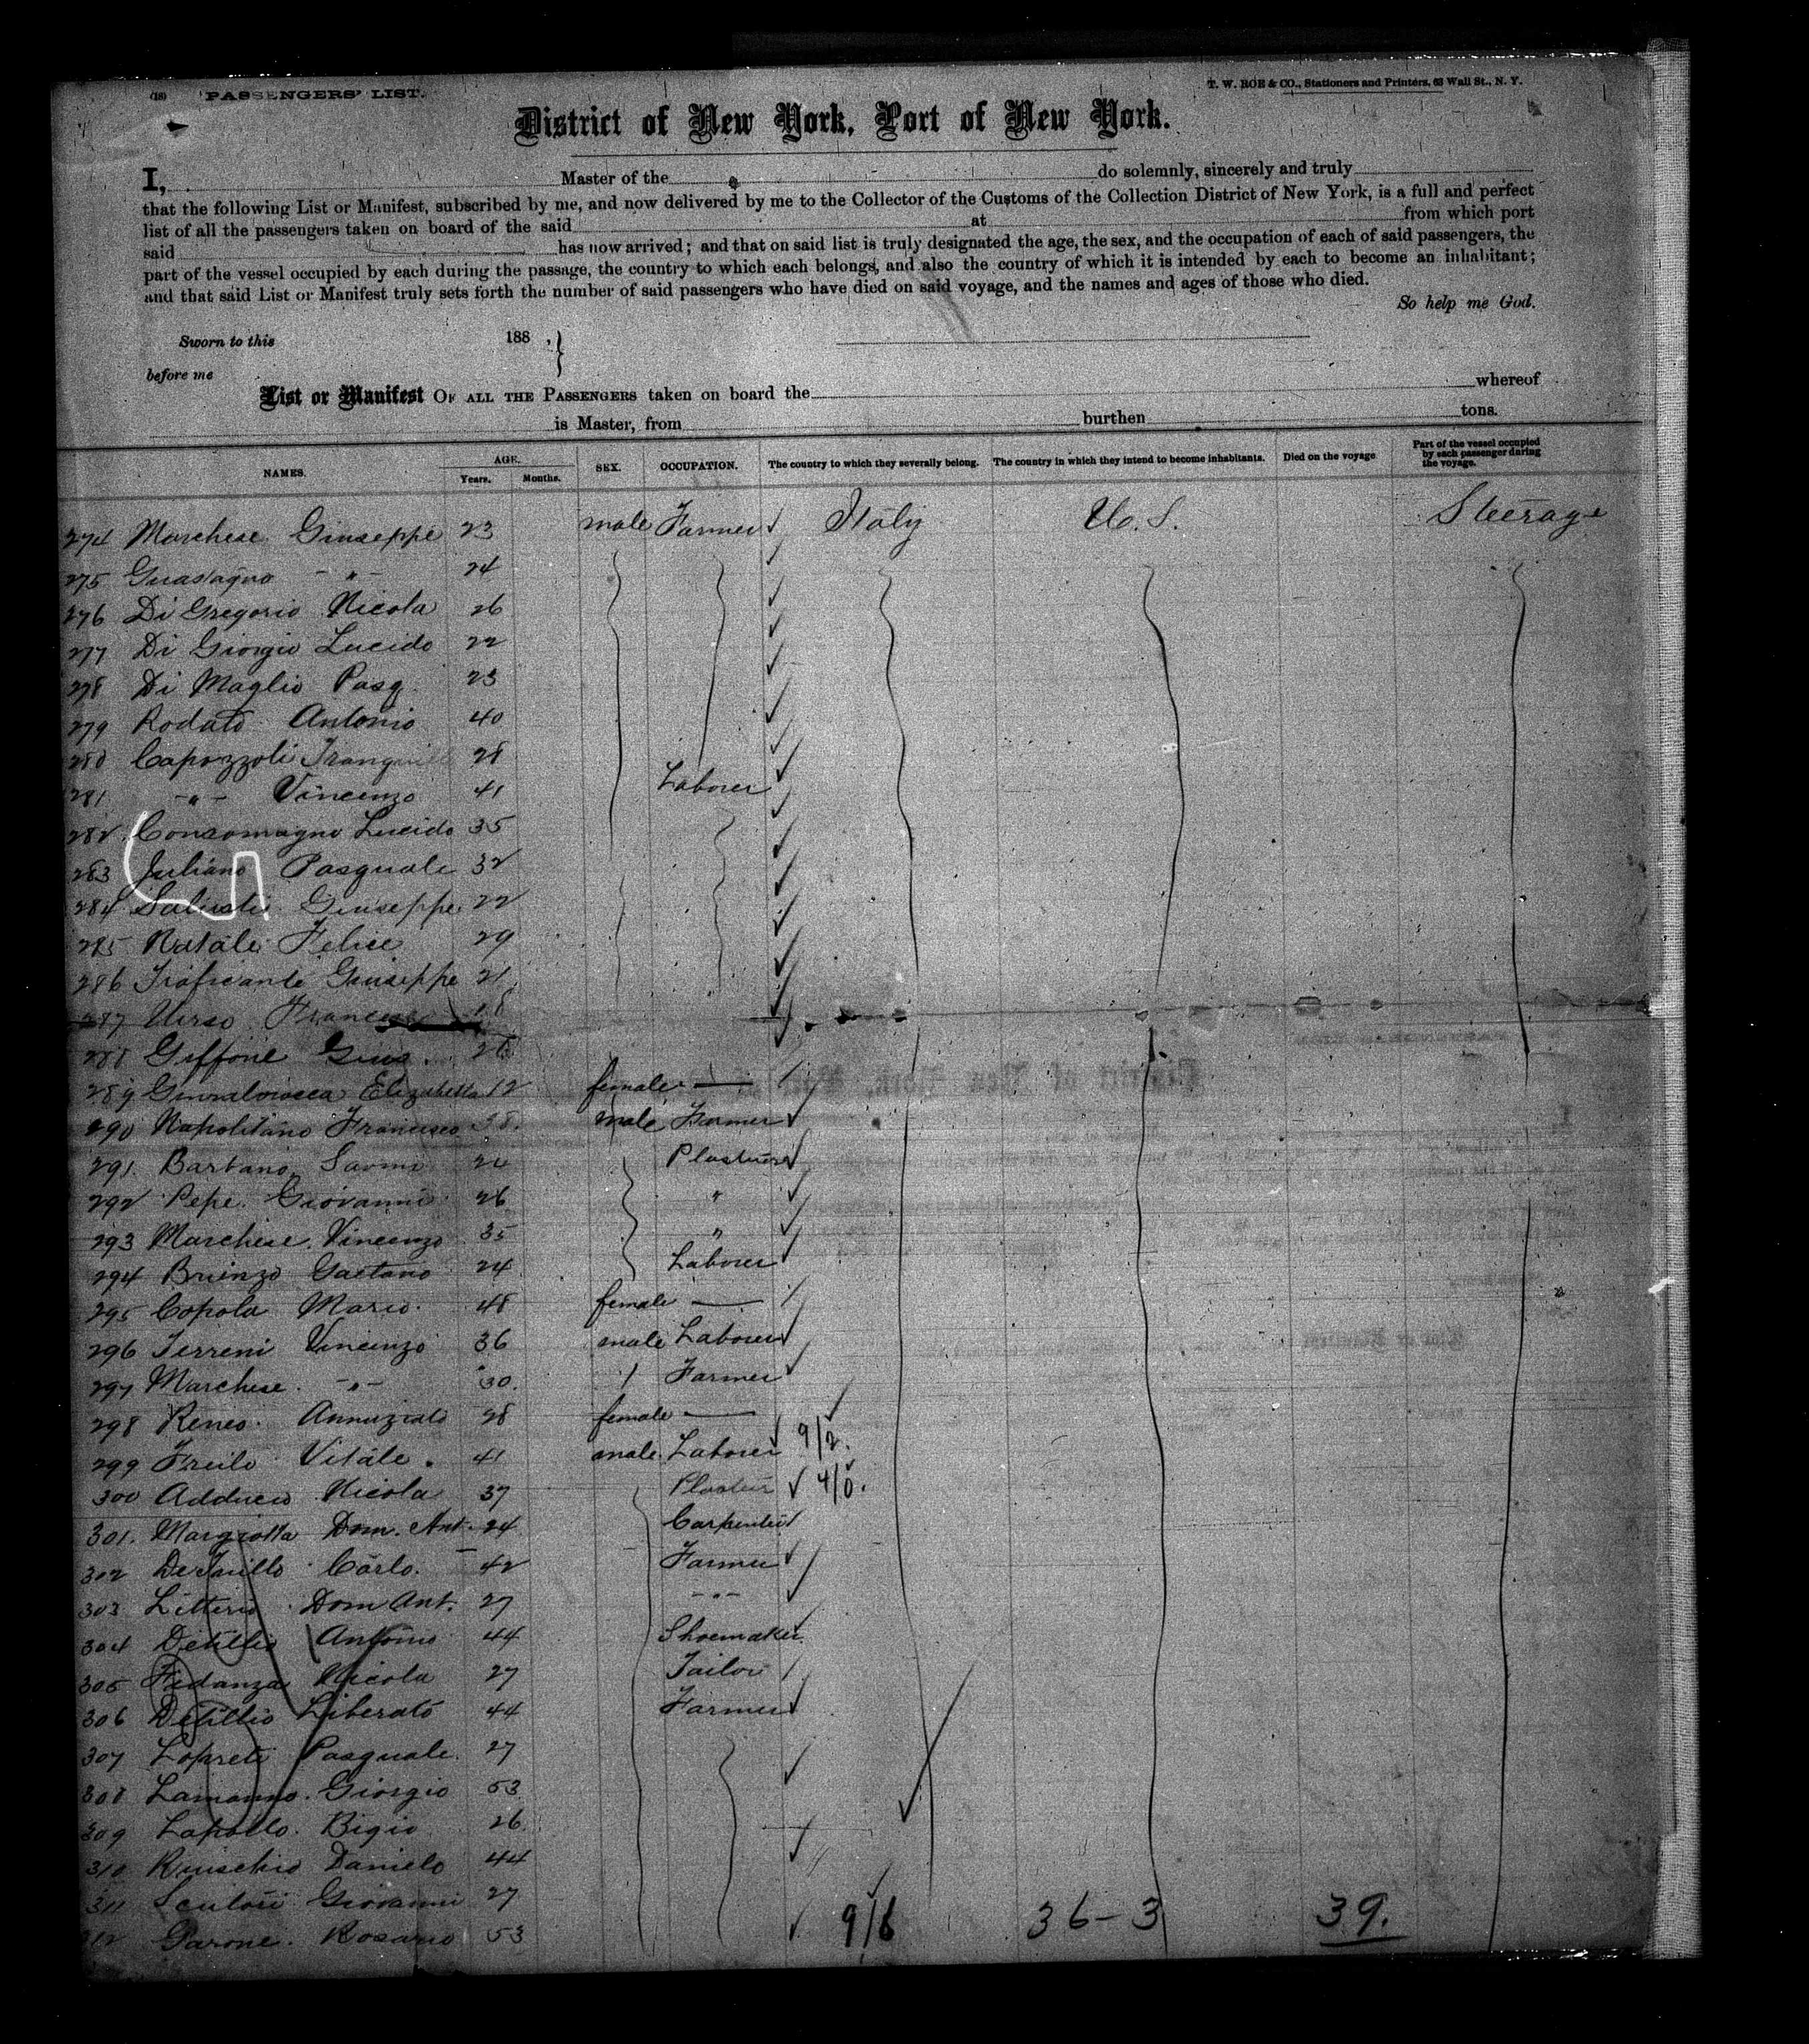 (18) PASSENGERS' LIST.
T. W. ROE & CO., Stationers and Printers, 63 Wall St., N. Y.
District of New York, Port of New York.
I, Master of the do solemnly, sincerely and truly
that the following List or Manifest, subscribed by me, and now delivered by me to the Collector of the Customs of the Collection District of New York, is a full and perfect
list of all the passengers taken on board of the said at from which port
said has now arrived; and that on said list is truly designated the age, the sex, and the occupation of each of said passengers, the
part of the vessel occupied by each during the passage, the country to which each belongs, and also the country of which it is intended by each to become an inhabitant;
and that said List or Manifest truly sets forth the number of said passengers who have died on said voyage, and the names and ages of those who died.
So help me God.
Sworn to this 188 ,
before me
List or Manifest OF ALL THE PASSENGERS taken on board the whereof
is Master, from burthen tons.
NAMES. AGE. Years. Months. SEX. OCCUPATION. The country to which they severally belong. The country in which they intend to become inhabitants. Died on the voyage Part of the vessel occupied by each passenger during the voyage.
274 Marchese Giuseppe 23 male Farmer Italy U. S. Steerage
275 Guastagno - " - 24
276 Di Gregorio Nicola 26
277 Di Giorgio Lucido 22
278 Di Maglio Pasq. 23
279 Rodato Antonio 40
280 Capozzoli 28
281 - " - Vincenzo 41 Laborer
282 Lucido 35
283 Juliano Pasquale 32
284 Giuseppe 22
285 Natale Felice 29
286 Traficante Giuseppe 21
287 Urso
288 Giffone Gius.
289 Elizabetta 12 female —
290 Napolitano Francesco male Farmer
291. Barbano 24
292 Pepe Giovanni 26 "
293 Marchese Vincenzo 35 "
294 Brienzo Gaetano 24 Laborer
295 Copola Maria 48 female —
296 Terreni Vincenzo 36 male Laborer
297 Marchese - " - 30. Farmer
298 Annuziata 28 female —
299 Vitale 41 male Laborer 9/2.
300 Adducio Nicola 37 4/0.
301. Margiotta Dom. Ant. 24 Carpenter
302 Carlo. 42 Farmer
303 Litterio Dom Ant. 27 - " -
304 Detillio Antonio 44 Shoemaker
305 Fidanza Nicola 27 Tailor
306 Detillio Liberato 44 Farmer
307 Lopreti Pasquale 27
308 Lamanno Giorgio 53
309 Lapollo Bigio 26
310 Ruischio Daniele 44
311 Giovanni 27
312 Garone Rosario 53
9/6 36-3 39.